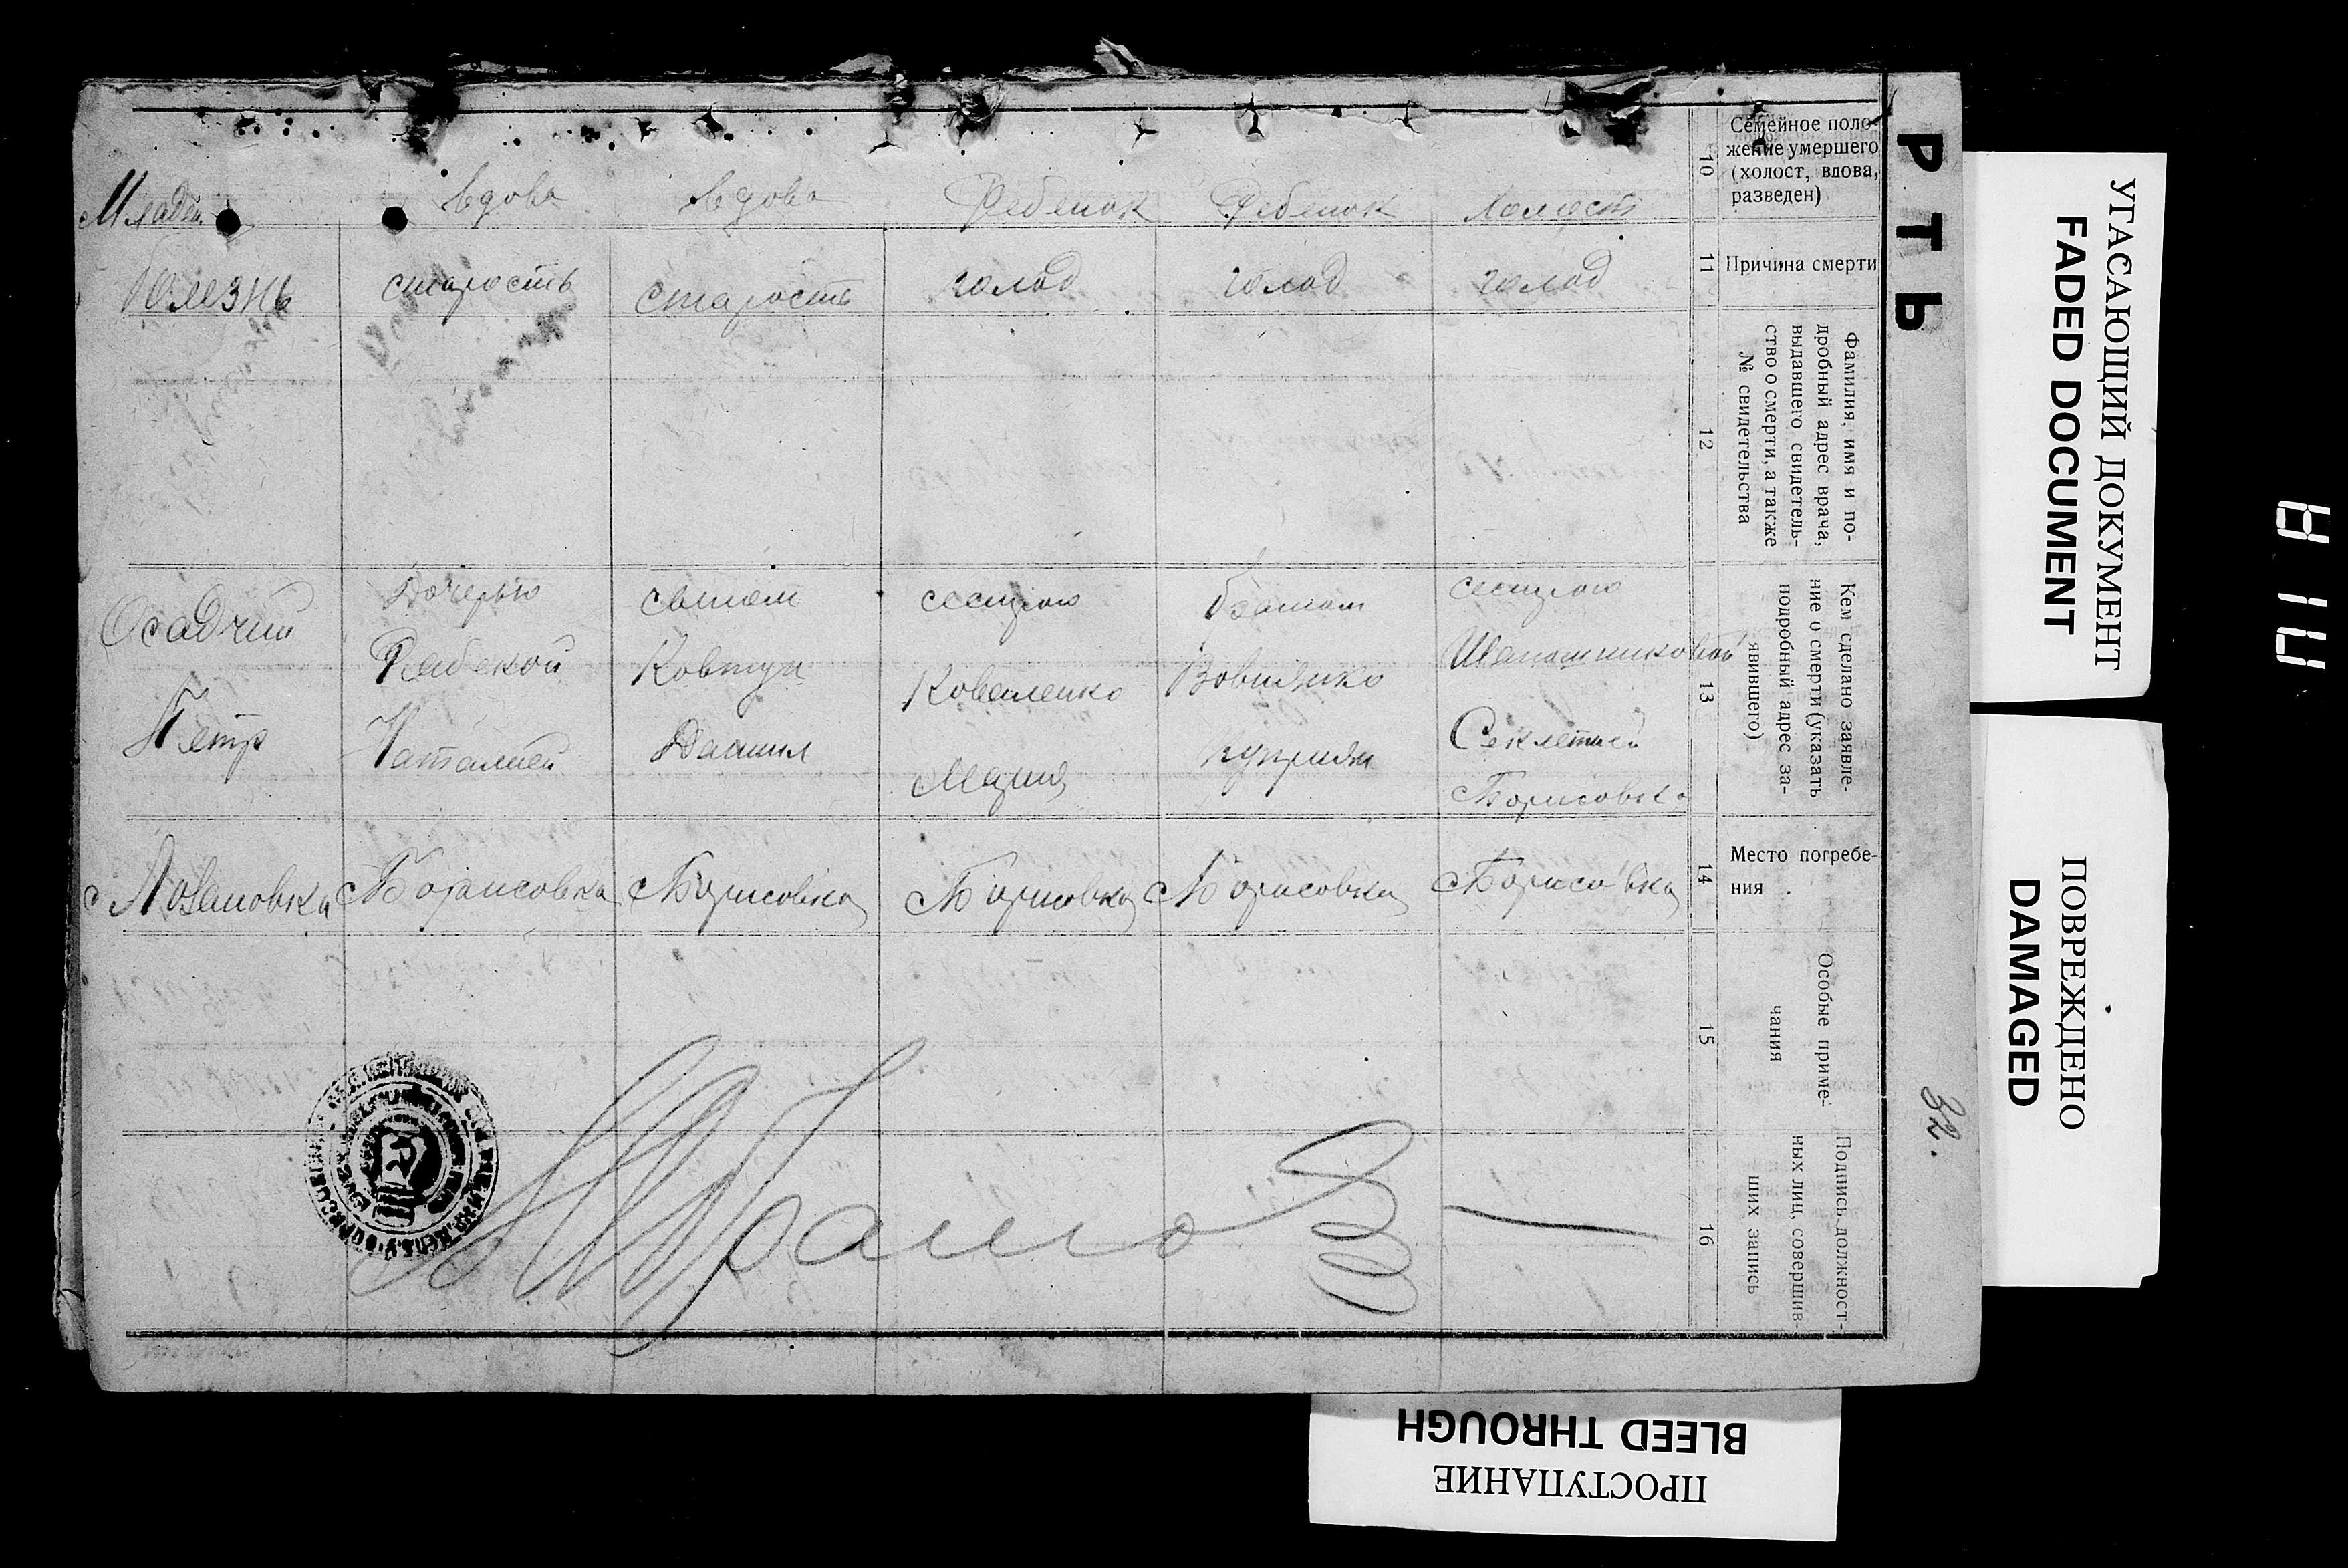 РТЬ
Семейное поло-
жение умершего
(холост, вдова,
разведен)
10
Младен
вдова
вдова
Ребенок
Ребенок
Холост
Причина смерти
11
болезнь
старость
старость
голод
голод
голод
Фамилия, имя и по-
дробный адрес врача,
выдавшего свидетель-
ство о смерти, а также
№ свидетельства
12
Кем сделано заявле-
ние о смерти (указать
подробный адрес за-
явившего)
13
Осадчий
Петр
Дочерью
Натальей
сыном
Ковтун
Данил
сестрою
Коваленко
Мария
братом
Куприян
сестрою
Секлетией
Борисовк
Место погребе-
ния
14
с Лозановка
с Борисовка
с Борисовка
с Борисовка
с Борисовка
с Борисовка
Особые приме-
чания
15
Подпись должност-
ных лиц, совершив-
ших запись
16
32.
УГАСАЮЩИЙ ДОКУМЕНТ
FADED DOCUMENT
ПОВРЕЖДЕНО
DAMAGED
ПРОСТУПАНИЕ
BLEED THROUGH